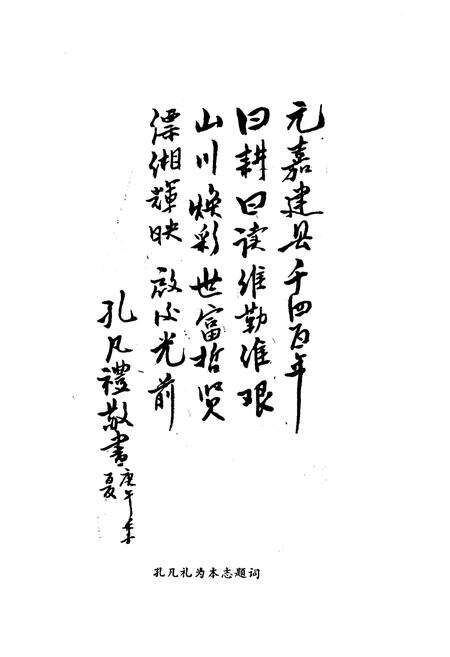 元嘉建县千四百年
曰耕曰读维勤维艰
山川焕彩世富哲贤
缥缃輝映啟后光前
孔凡禮敬書
庚午季
夏
孔凡礼为本志题词